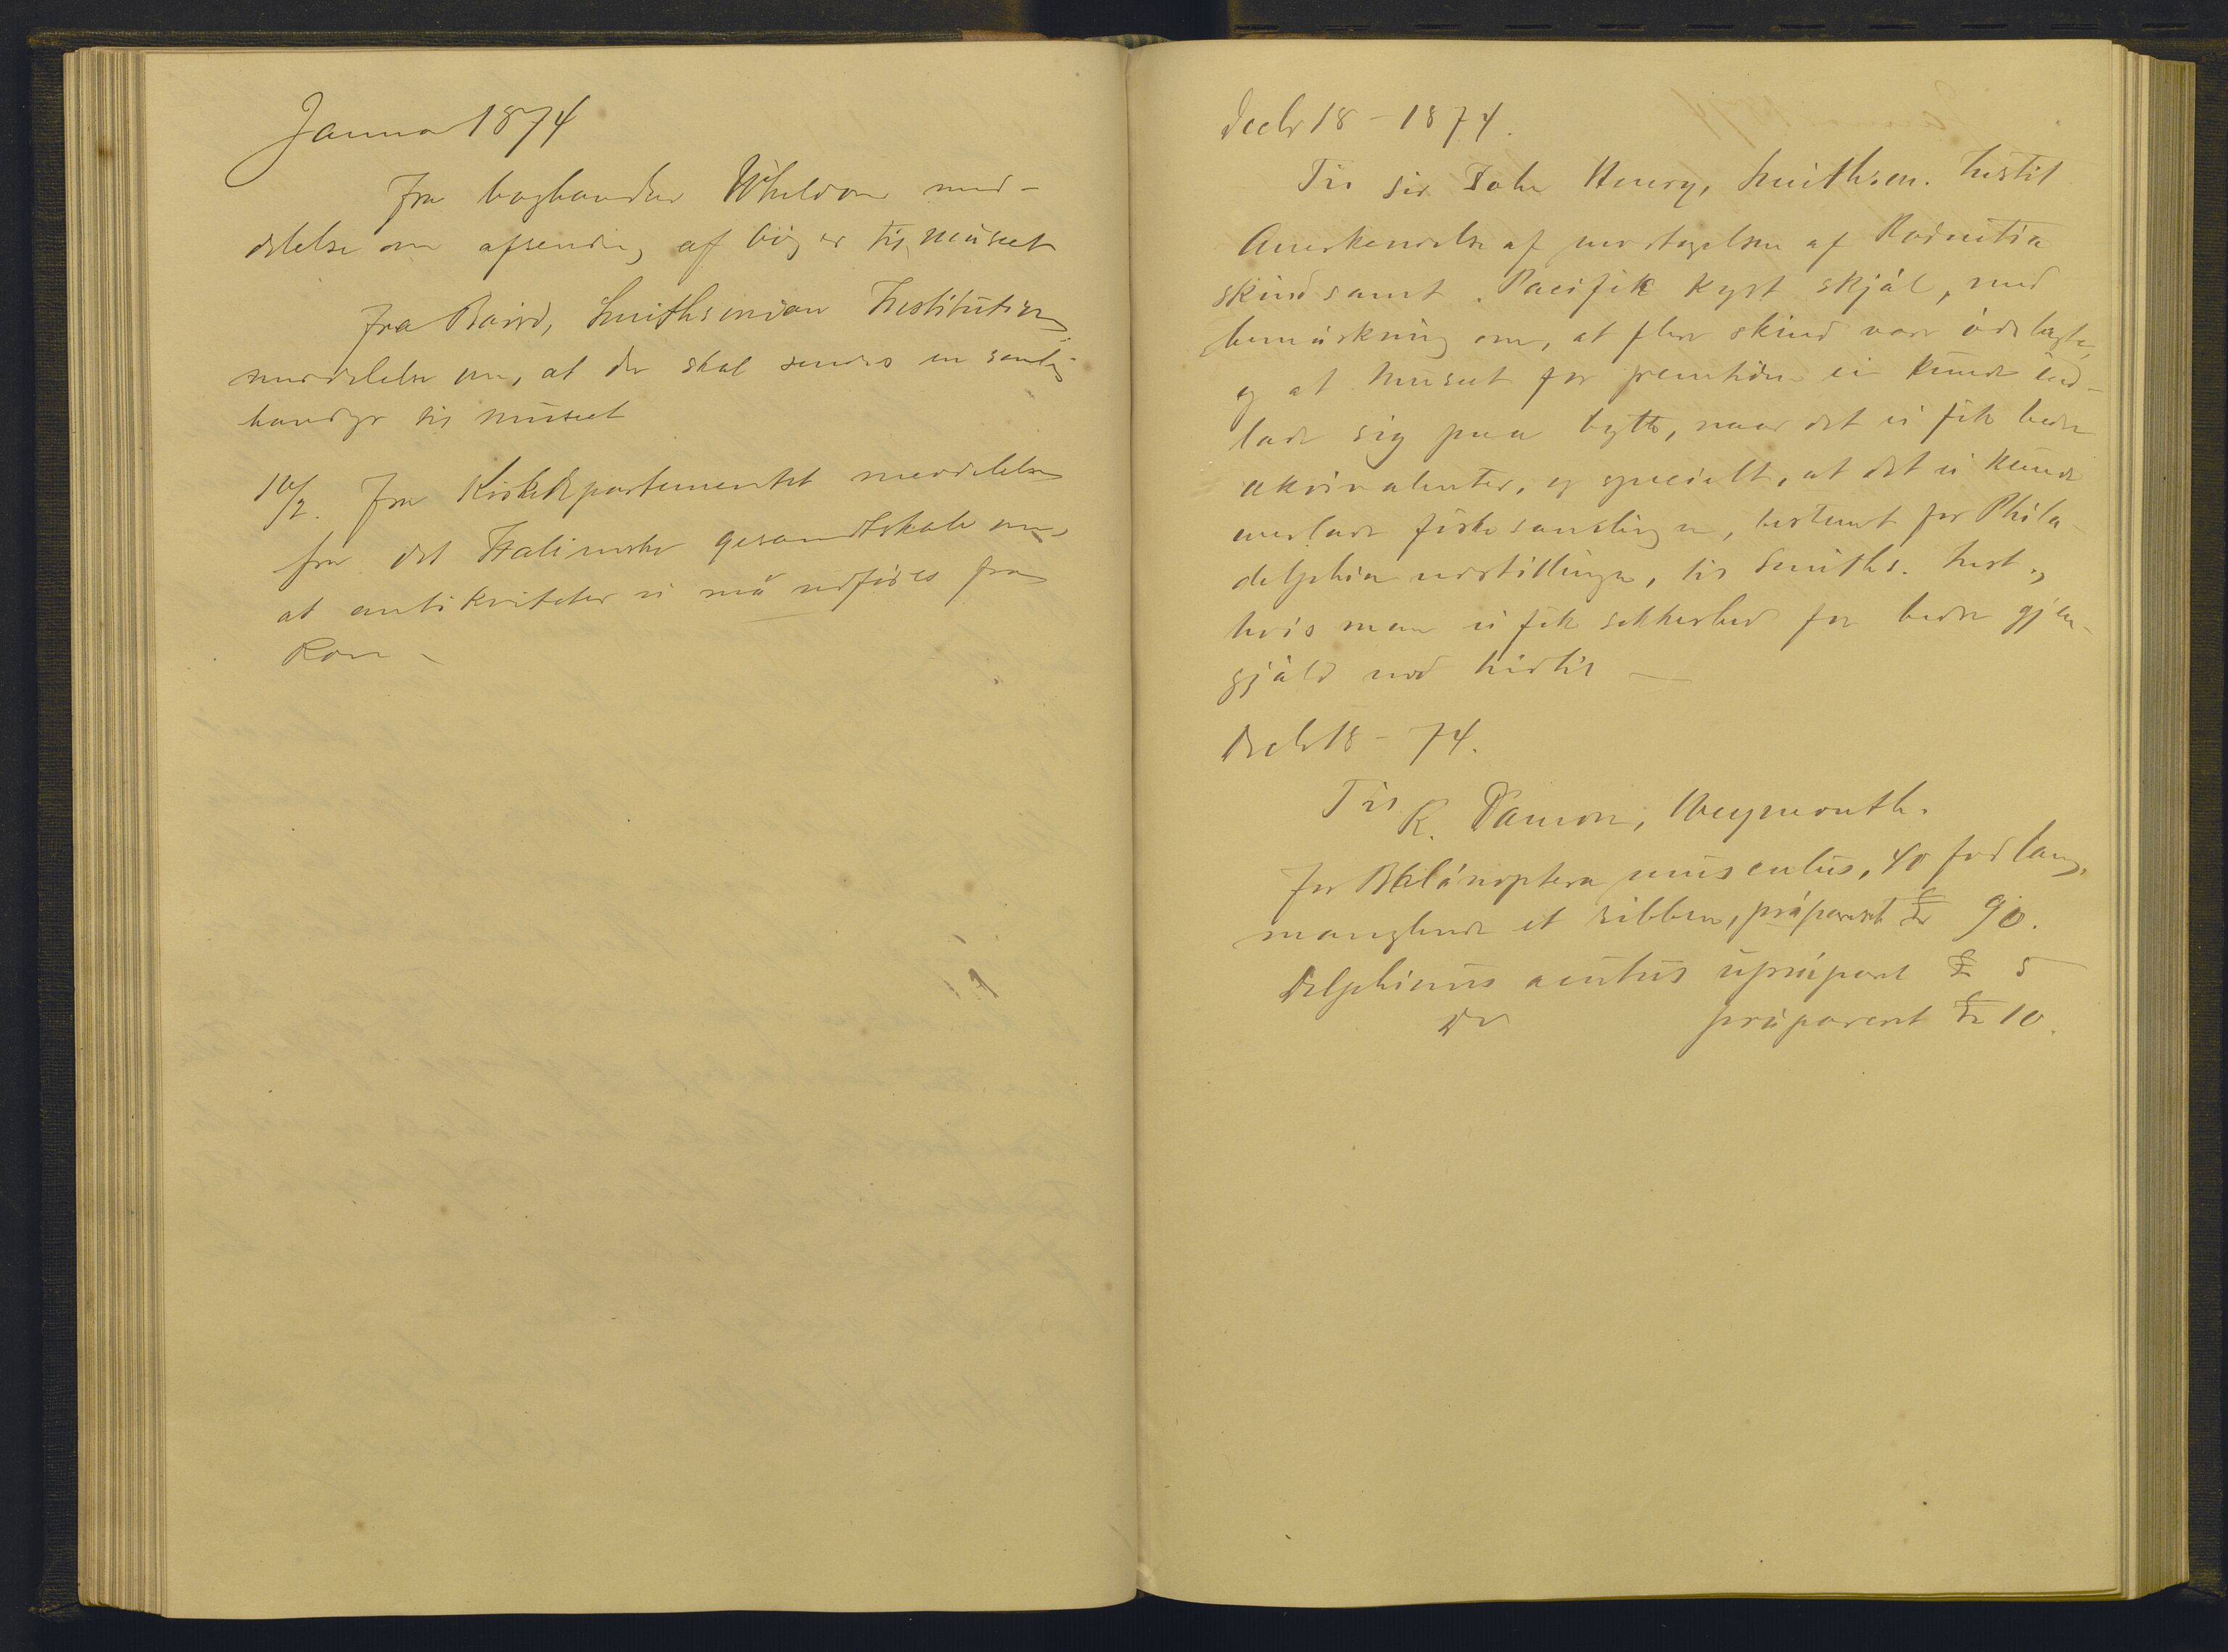 Januar 1874
Fra boghandler Wheldon med-
delelse om afsending af böger til museet
Fra Baird, Smithsonian Institution,
meddelelse om, at der skal sendes en samling
til museet
10/2. Fra Kirkedepartementet meddelelse
fra det Italienske gesandtskab om,
at antikviteter ei må udføres fra
Rom –
Decbr 18 – 1874.
Til sir John Henry, Smithson. Instit
Anerkendelse af modtagelsen af
skind samt Pacifik kyst skjäl, med
bemärkning om, at flere skind vare ödelagte,
og at museet for fremtiden ei kunde ind-
lade sig paa bytte, naar det ei fik bedre
ekvivalenter, og specielt, at det ei kunde
overlade fiskesamlingen, bestemt for Phila-
delphia udstillingen, til Smiths. Inst.,
hvis man ei fik sikkerhed for bedre gjen-
gjäld end hidtil —
Decbr 18 – 74.
Til R. Damon, Weymouth.
For Balänoptera musculus, 40 fod lang,
manglende et ribben, präpareret £ 90.
Delphinus acutus upräparet £ 5
Do präpareret £ 10.